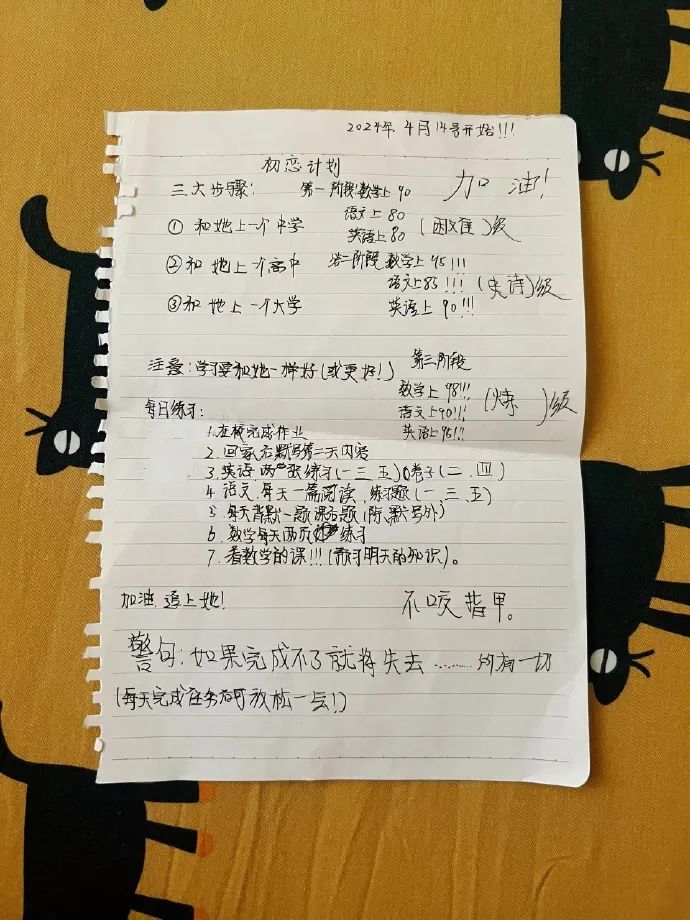 2024年 4月14号开始!!!
初恋计划
三大步骤: 第一阶段:数学上90 加油!
语文上80
①和她上一个中学 英语上80 (困难)级
②和她上一个高中 第二阶段 数学上95!!!
语文上85!!! (史诗)级
③和她上一个大学 英语上90!!!
注意:学习要和她一样好(或更好!) 第三阶段
数学上98!!!
每日练习: 语文上90!!! (炼 )级
1.在校完成作业 英语上95!!!
2.回家后默写第二天内容
3.英语两张练习(一三五)卷子(二.四)
4.语文每天一篇阅读、练习题(一、三、五)
5.每天背默一题课后题(除、默写外)
6.数学每天两页练习
7.看数学的课!!!(预习明天的知识)。
加油,追上她! 不咬指甲。
警句:如果完成不了就将失去………所有一切
(每天完成任务后可放松一会!)